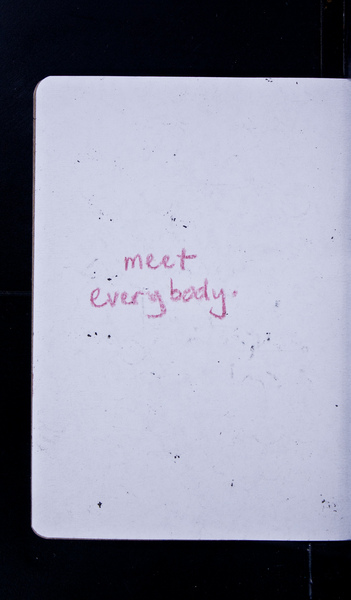 meet
everybody.